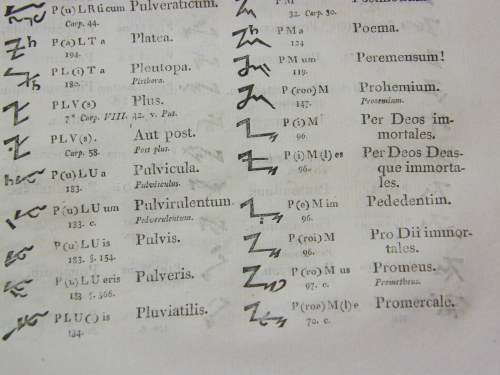 P(u)LRücum Pulveraticum.
Carp. 44.
P(a)LTa Platea.
194.
PL(i)Ta Plentopa.
180.
PLV(s) Plus.
PLV(s). Aut post.
Carp. 58. Post plus.
P(u)LUa Pulvicula.
183. Pulvisculus.
P(u)LUum Pulvirulentum.
183. c. Pulverulentum.
P(u)LUis Pulvis.
183. §. 154.
P(u)LUeris Pulveris.
183 §. 366.
PLU()is Pluviatilis.
134.
PM
32. Carp. 30.
PMa Poema.
124
PMum Peremensum!
119.
P(roo)M Prohemium.
147. Proemium.
P(i)M Per Deos im-
96. mortales.
P(i)M(l)es Per Deos Deas-
96. que immorta-
les.
P(e)Mim Pededentim.
96.
P(roi)M Pro Dii immor-
96. tales.
P(ro)Mus Promeus.
97. c. Prometheus.
P(roe)M(l)e Promercale.
70. c.